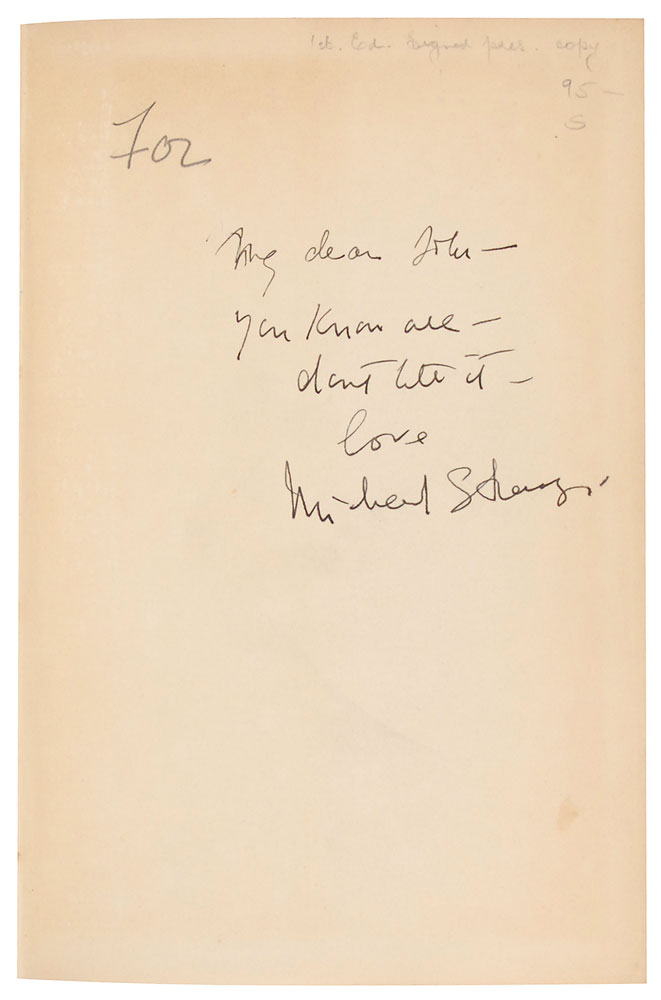 1st. Ed. Signed pres. copy
95—
S
For
My dear John —
you know all —
dont let it —
love
Michael Strange